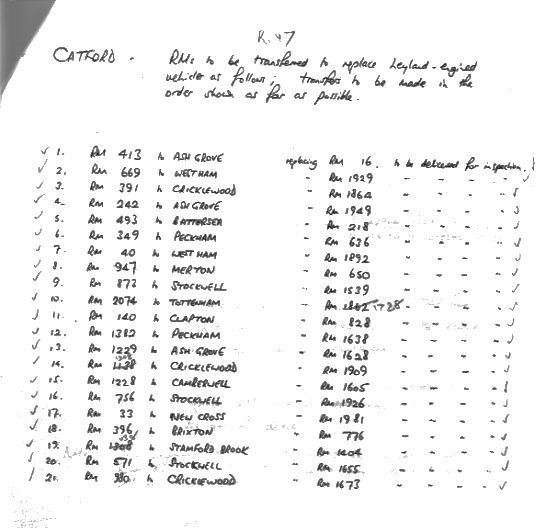 R.47
CATFORD. RMs to be transferred to replace Leyland-engined
vehicles as follows; transfers to be made in the
order shown as far as possible.
✓ 1. RM 413 to ASH GROVE replacing RM 16. to be delivered for inspection. ✓
✓ 2. RM 669 to WEST HAM " RM 1929 - - - - ✓
✓ 3. RM 391 to CRICKLEWOOD " RM 1864 - - - - ✓
✓ 4. RM 242 to ASH GROVE " RM 1949 - - - - ✓
✓ 5. RM 493 to BATTERSEA " RM 218 - - - - ✓
✓ 6. RM 349 to PECKHAM " RM 636 - - - - ✓
✓ 7. RM 40 to WEST HAM " RM 1892 - - - - ✓
✓ 8. RM 947 to MERTON " RM 650 - - - - ✓
✓ 9. RM 873 to STOCKWELL " RM 1539 - - - - ✓
✓ 10. RM 2074 to TOTTENHAM " RM 1728 - - - ✓
✓ 11. RM 140 to CLAPTON " RM 828 - - - - ✓
✓ 12. RM 1382 to PECKHAM " RM 1638 - - - - ✓
✓ 13. RM 1229 to ASH GROVE " RM 1628 - - - - ✓
✓ 14. RM to CRICKLEWOOD " RM 1909 - - - - ✓
✓ 15. RM 1228 to CAMBERWELL " RM 1605 - - - - ✓
✓ 16. RM 756 to STOCKWELL " RM 1926 - - - - ✓
✓ 17. RM 33 to NEW CROSS " RM 1981 - - - - ✓
✓ 18. RM 396 to BRIXTON " RM 776 - - - - ✓
✓ 19. RM to STAMFORD BROOK " RM 1404 - - - - ✓
✓ 20. RM 571 to STOCKWELL " RM 1655 - - - - ✓
/ 21. RM to CRICKLEWOOD " RM 1673 - - - - ✓